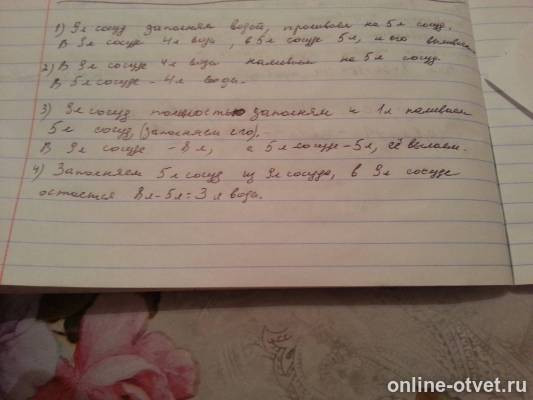 1) 9л сосуд заполняем водой, проливаем на 5л сосуд.
В 9л сосуде 4л воды, в 5л сосуде 5л, и его выливаем
2) В 9л сосуде 4л воды наливаем на 5л сосуд
В 5л сосуде - 4л воды.
3) 9л сосуд полностью заполням и 1л наливаем
5л сосуд, (заполняем его).
В 9л сосуде - 8л, а 5л сосуде - 5л, её выльем.
4) Заполняем 5л сосуд из 9л сосуда, в 9л сосуде
остается 8л-5л=3л воды.
online-otvet.ru